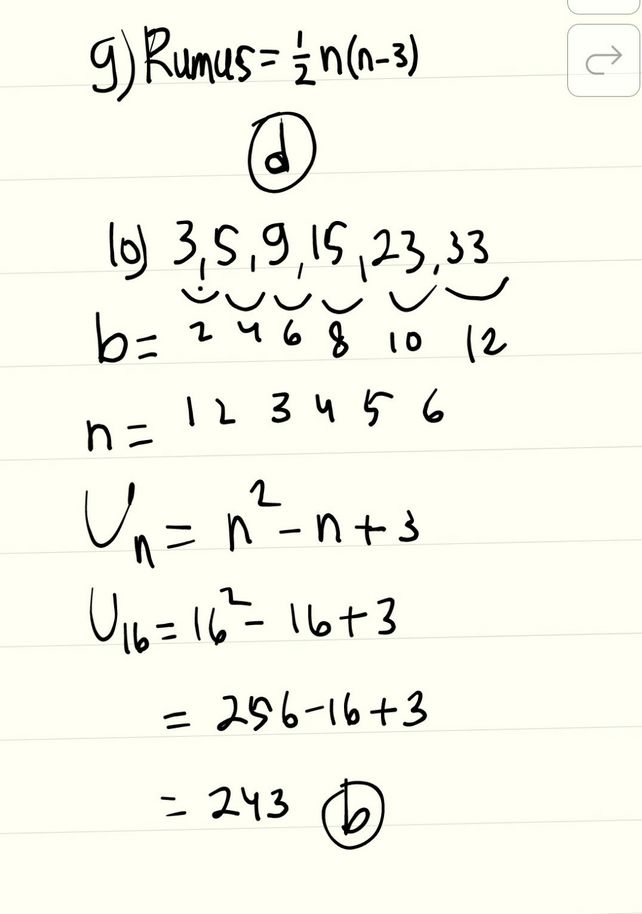 9) Rumus = ½ n(n-3)
d
10) 3, 5, 9, 15, 23, 33
b = 2 4 6 8 10 12
n = 1 2 3 4 5 6
Uₙ = n² - n + 3
U₁₆ = 16² - 16 + 3
= 256 - 16 + 3
= 243 b